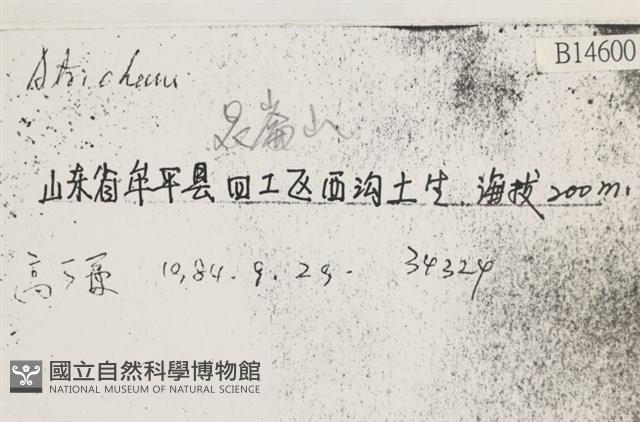 B14600
Atrichum
昆崳山
山东省牟平县四工区西沟土生.海拔200m.
1984.9.29. 34324
國立自然科學博物館
NATIONAL MUSEUM OF NATURAL SCIENCE